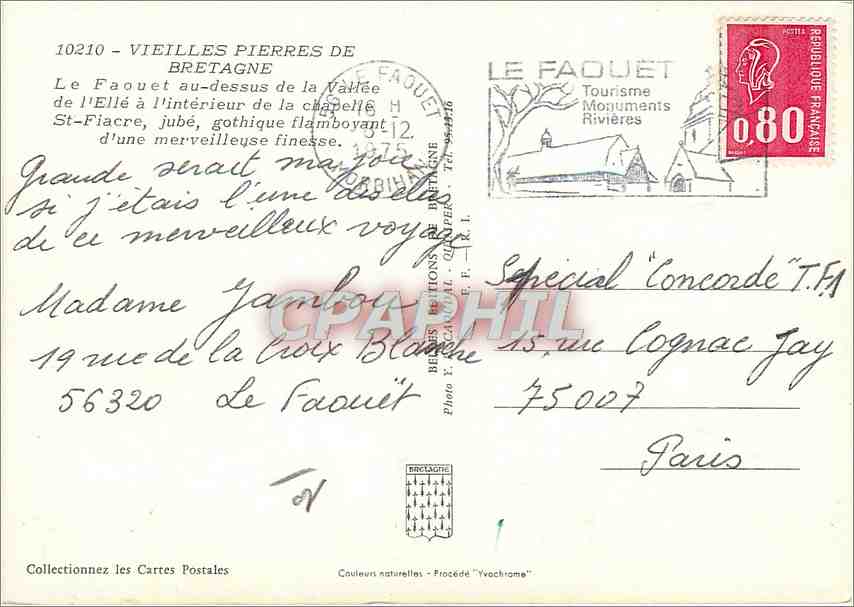 10210 - VIEILLES PIERRES DE
BRETAGNE
Le Faouet au-dessus de la Vallée
de l'Ellé à l'intérieur de la chapelle
St-Fiacre, jubé, gothique flamboyant
d'une merveilleuse finesse.
LE FAOUET
16 H
-12
1975
MORBIHAN
LE FAOUET
Tourisme
Monuments
Rivières
POSTES
REPUBLIQUE FRANÇAISE
0,80
Grande serait ma joie
si j'étais l'une des élus
de ce merveilleux voyage
Madame Jambou
19 rue de la Croix Blanche
56320 Le Faouët
BELLES EDITIONS DE BRETAGNE
Photo Y. R. CAOUDAL - QUIMPER - Tél. 95-13-16
F. F. - R. I.
Spécial "Concorde" T.F.1
15, rue Cognac Jay
75007
Paris
CPAPHIL
BRETAGNE
Collectionnez les Cartes Postales
Couleurs naturelles - Procédé "Yvochrome"